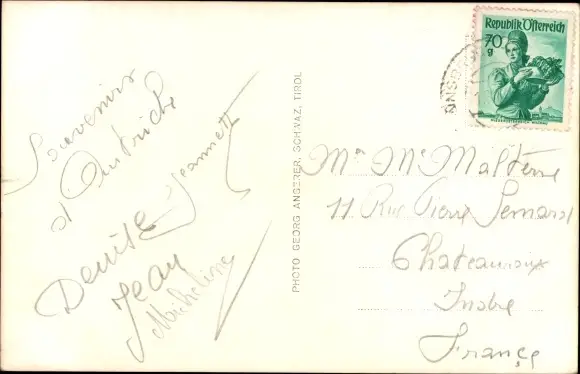 Souvenirs
d'Autriche
Jeannette
Denise
Jean
Micheline
PHOTO GEORG ANGERER, SCHWAZ, TIROL
Republik Österreich
70
g
NNSB
Mr Me Malterre
11 Rue Pierre
Chateauroux
Indre
France